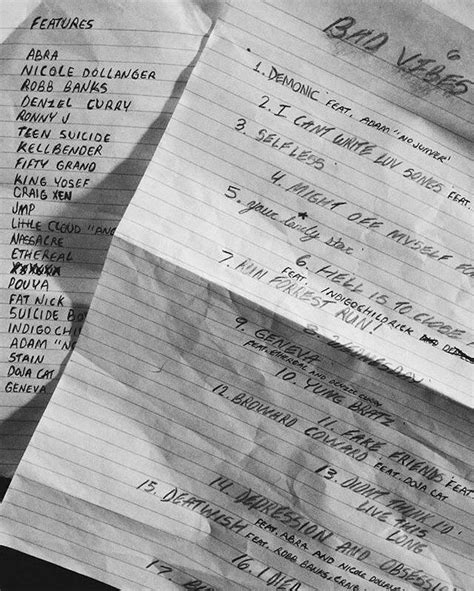 FEATURES
ABRA
NICOLE DOLLANGER
ROBB BANKS
DENZEL CURRY
RONNY J
TEEN SUICIDE
KELLBENDER
FIFTY GRAND
KING YOSEF
CRAIG XEN
JMP
LITTLE CLOUD "ANG
MASSACRE
ETHEREAL
POUYA
FAT NICK
SUICIDE BO
INDIGO CHI
ADAM "NO
STAIN
DOJA CAT
GENEVA
BAD VIBES 6
1. DEMONIC FEAT. ADAM "NO JUMPER"
2. I CANT WRITE LUV SONGS FEAT.
3. SELFLESS
4. MIGHT OFF MYSELF
5. your lonely star *
6. HELL IS TO CLOSE
FEAT. INDIGOCHILDRICK AND
7. RUN FORREST RUN!
8.
9. GENEVA
FEAT. ETHEREAL AND DENZEL CURRY
10. YUNG BRATZ
11. FAKE FRIENDS FEAT
12. BROWARD COWARD FEAT. DOJA CAT
13. I DIDNT THINK I'D
LIVE THIS
LONG
14. DEPRESSION AND OBSESSION
FEAT. ABRA AND NICOLE DOLLANG
15. DEATWISH FEAT. ROBB BANKS, CRAIG
16. I DIED
17.